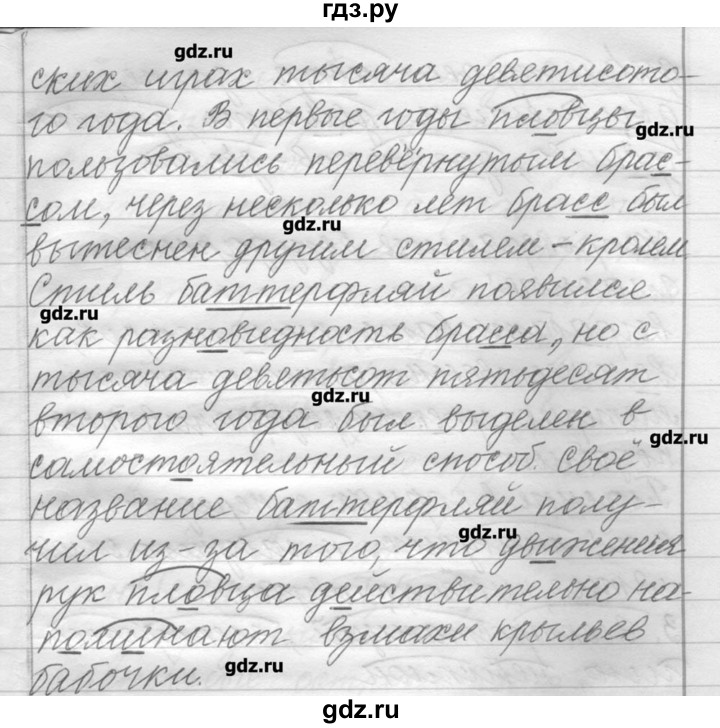 гдз.ру
gdz.ru
ских играх тысяча девятисото-
го года. В первые годы пловцы
gdz.ru
пользовались перевёрнутым брас-
сом, через несколько лет брасс был
gdz.ru
вытеснен другим стилем – кролем
Стиль баттерфляй появился
gdz.ru
как разновидность брасса, но с
тысяча девятьсот пятьдесят
gdz.ru
второго года был выделен в
gdz.ru
самостоятельный способ. Своё
название баттерфляй полу-
gdz.ru
чил из-за того, что движения
рук пловца действительно на-
поминают взмахи крыльев
gdz.ru
бабочки.
gdz.ru